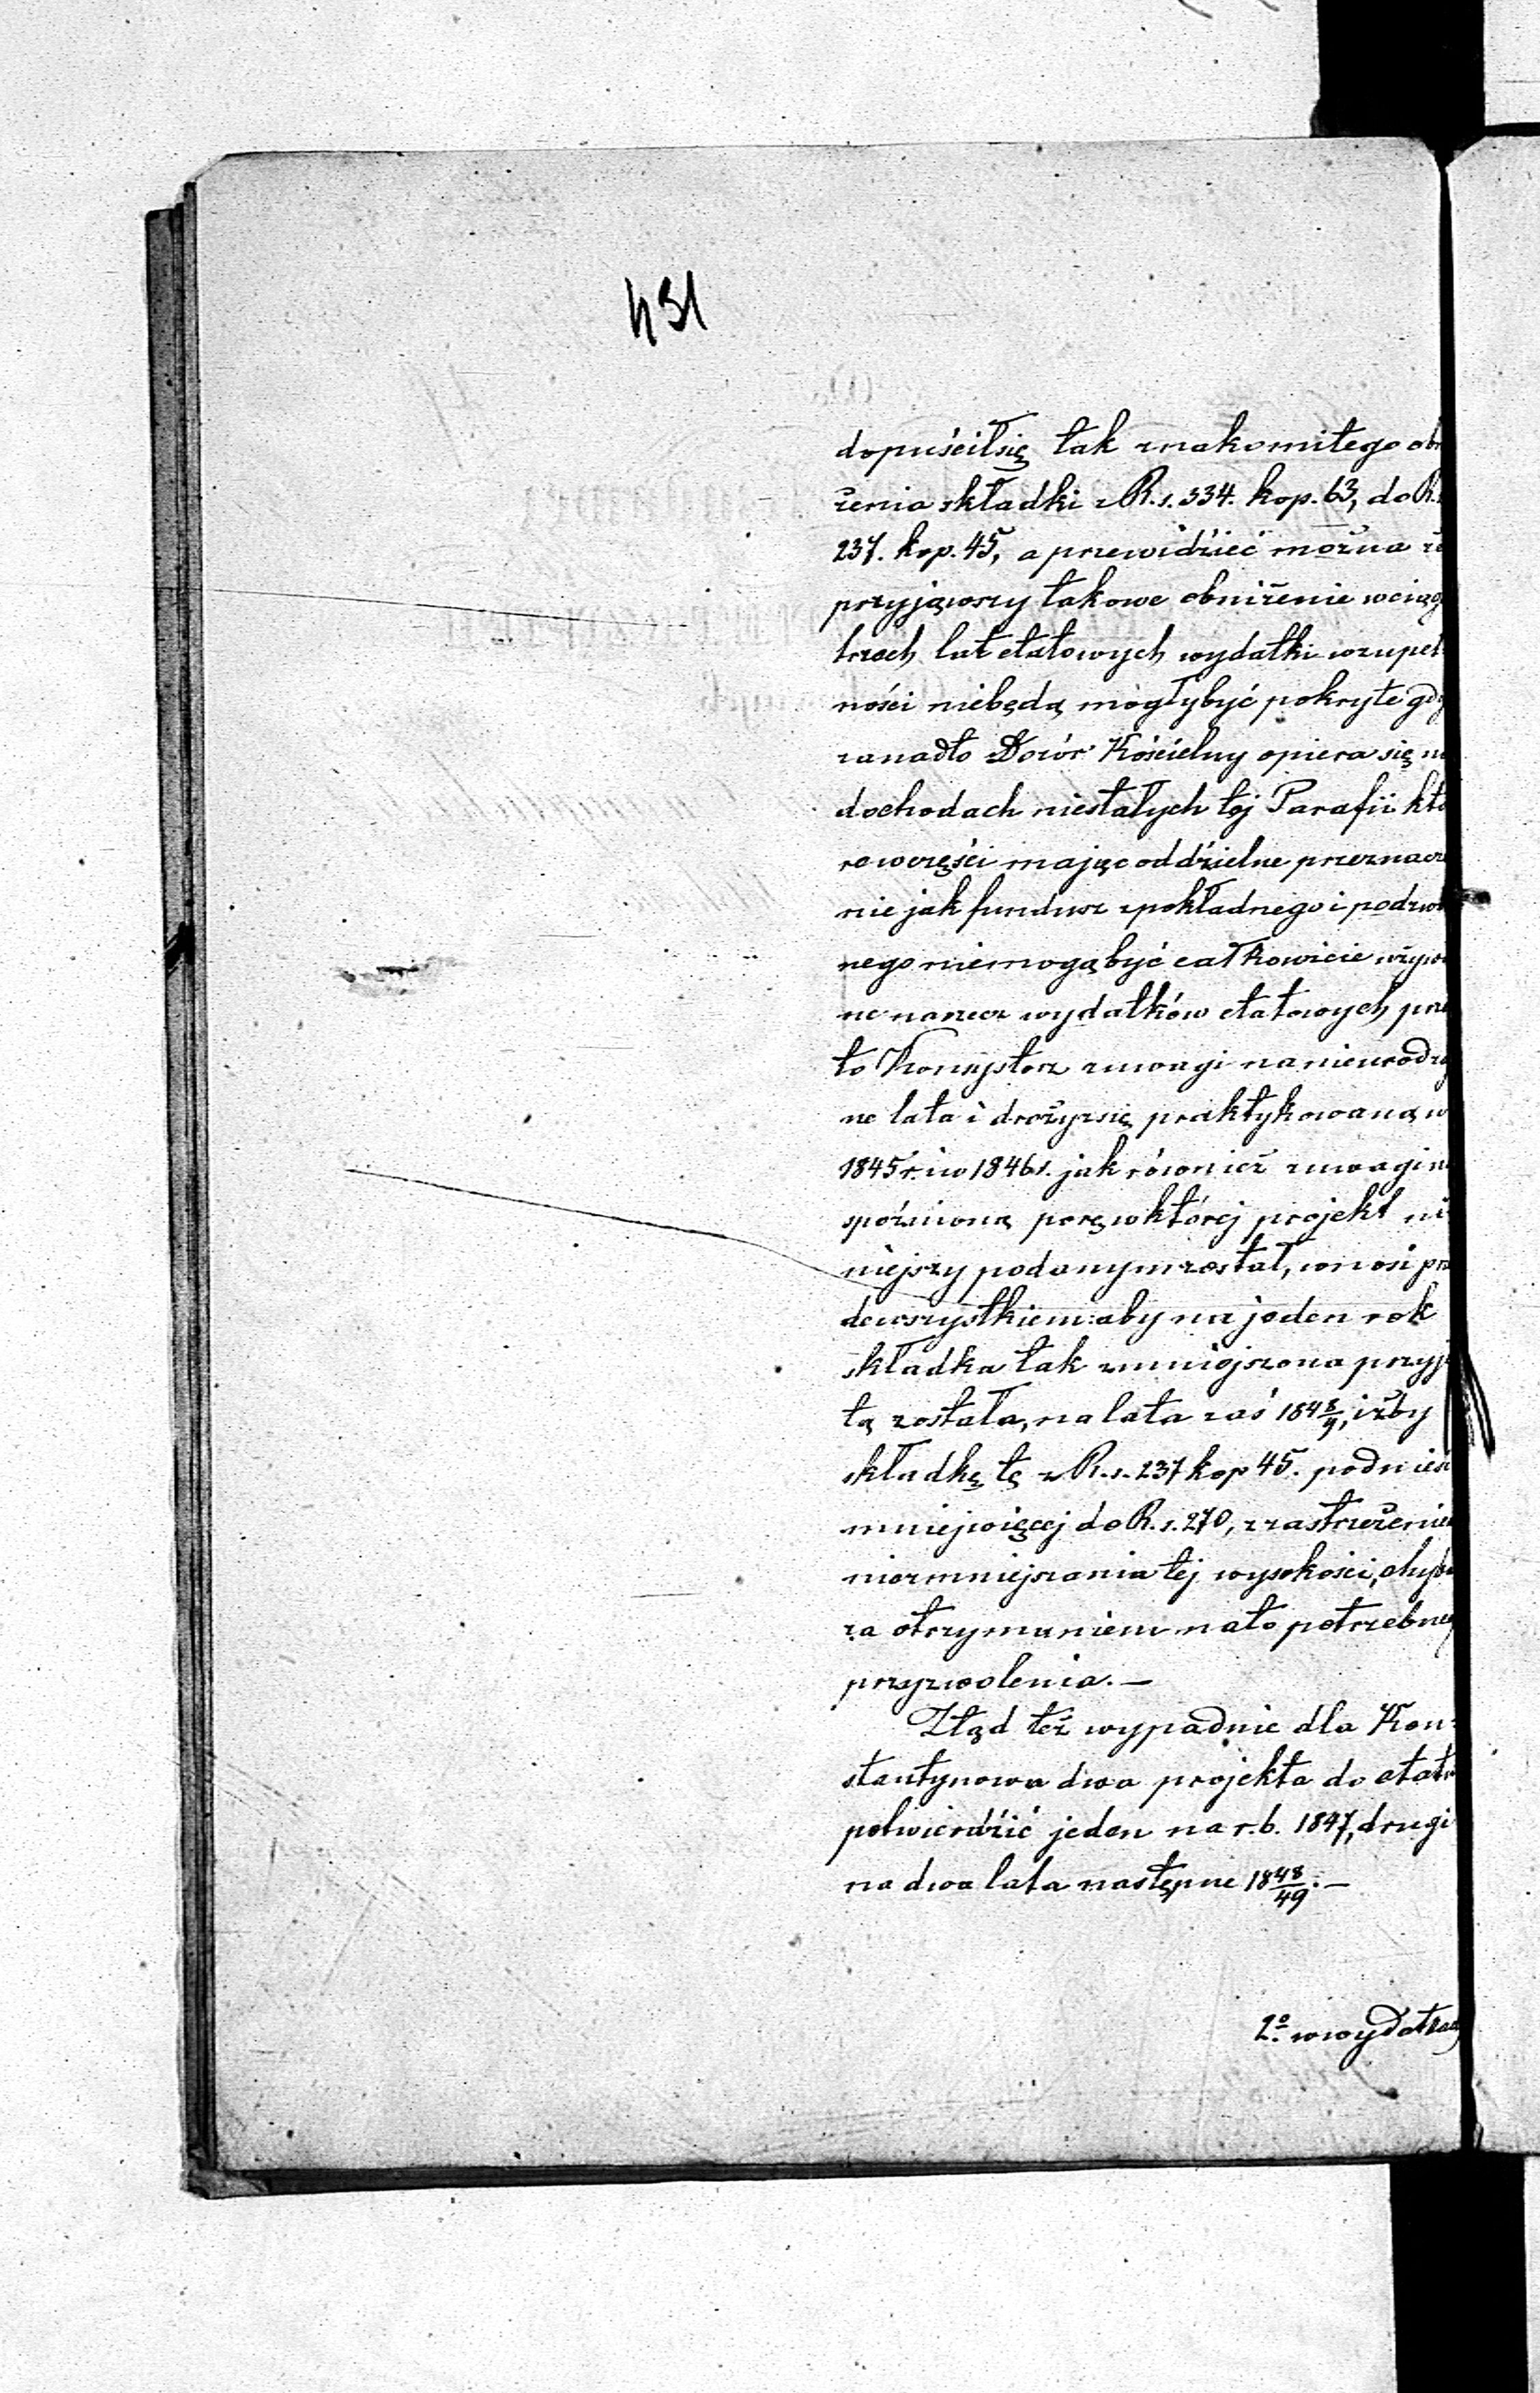 431
dopuściłsię tak znakomitego ob
żenia składki z R.s. 334. kop. 63, do R.
237. kop. 45, a przewidzieć można
przyjąwszy takowe obniżenie wciąg
trzech lat etatowych wydatki wzupeł
ności niebędą mogłybyć pokryte gdy
zanadto Dozór Kościelny opiera się n
dochodach niestałych tej Parafii któ
re wczęści mając oddzielne przeznacze
nie jak fundusz zpokładnego i podzwo
nego niemogąbyć całkowicie używa
ne narzecz wydatków etatowych prze
to Konsystorz zuwagi na nieurodzaj
ne lata i drożyznę praktykowaną w
1845r. iw 1846r. jak również zuwagi n
spóźnioną porę wktórej projekt ni
niejszy podanym został, wnosi prze
dewszystkiem: aby na jeden rok
składka tak zmniejszona przyję
tą została, na lata zaś 184 8/9, iżby
składkę tę z R.s. 237 kop 45. podnieść
mniejwięcej do R.s. 270, zzastrzeżenie
niezmniejszania tej wysokości, chyba
za otrzymaniem nato potrzebneg
przyzwolenia.—
Ztąd też wypadnie dla Kon-
stantynowa dwa projekta do etatu
potwierdzić jeden na r.b. 1847, drugi
na dwa lata następne 18 48/49.—
2º wwydatka